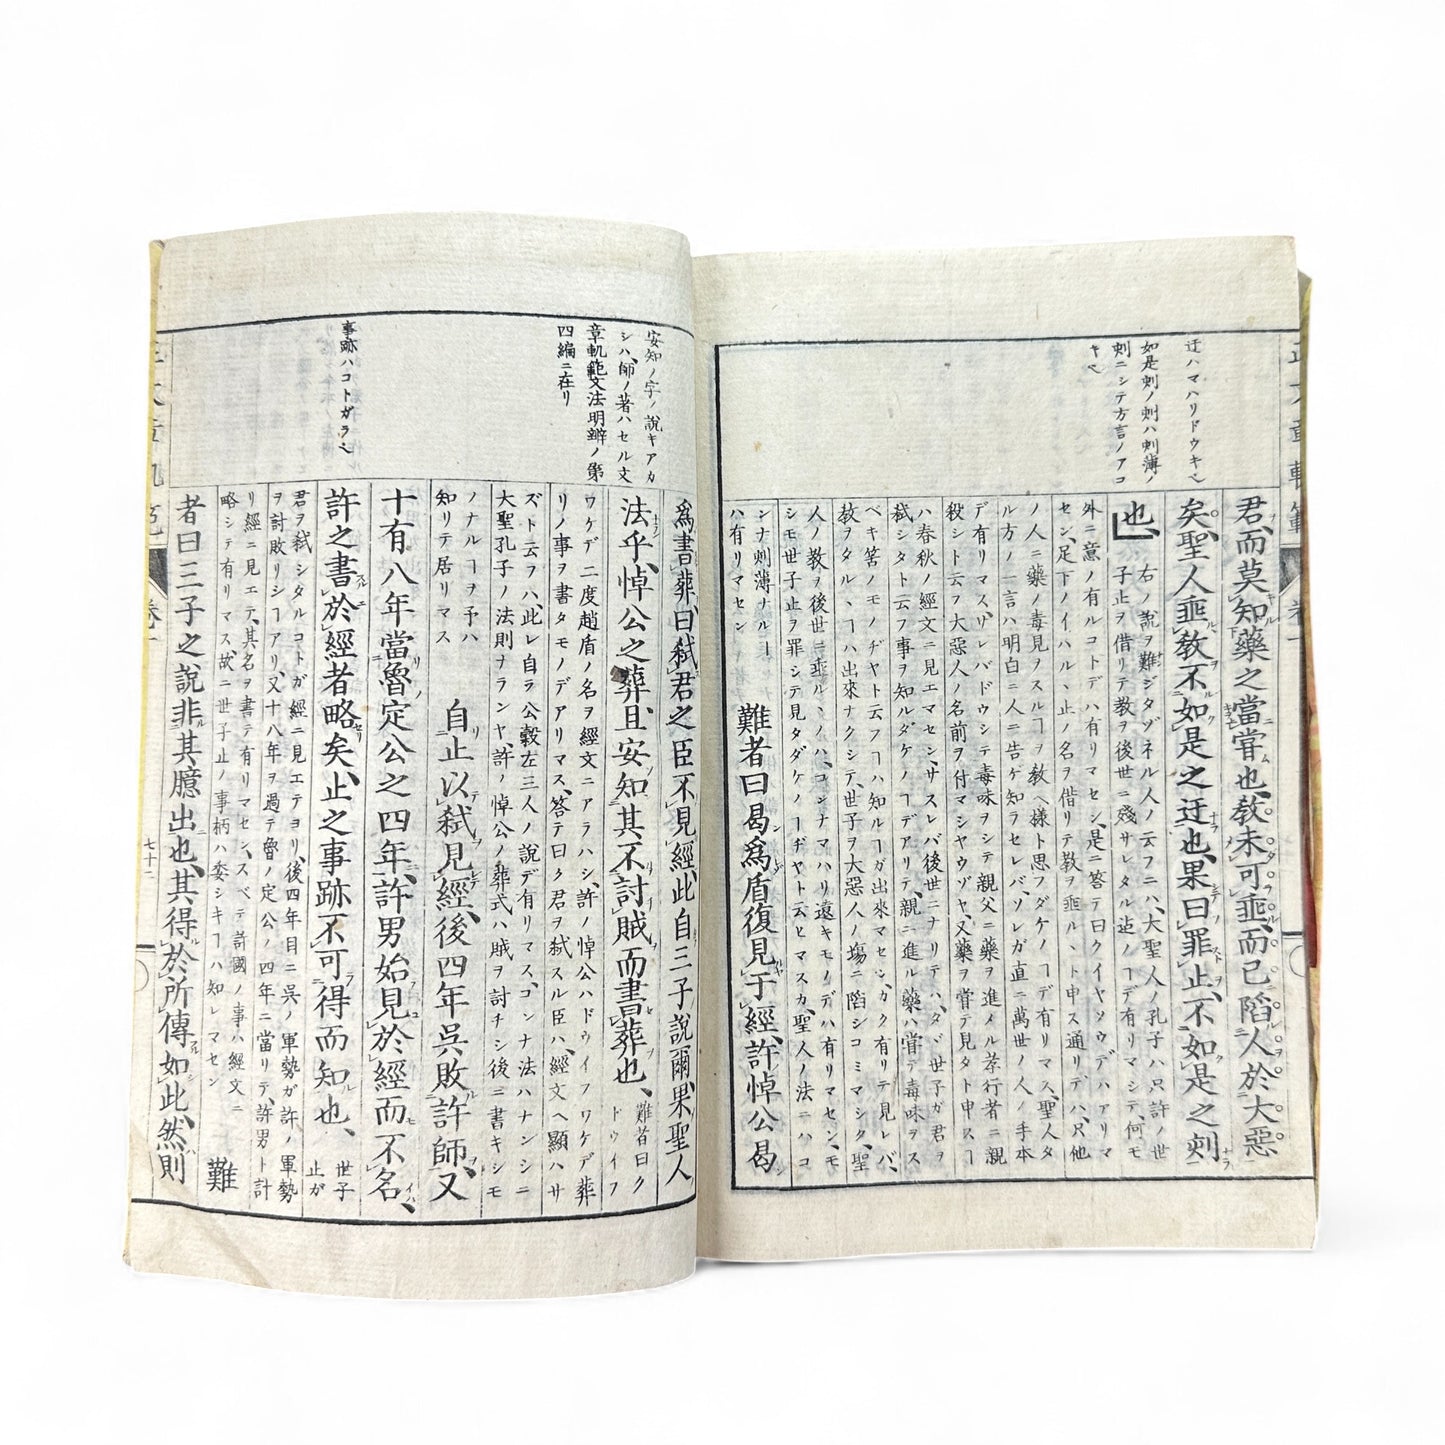 迂ハマハリドウキベ
如是刺ノ刺ハ刺薄ノ
刺ニシテ方言ノアコ
キベ
君而莫知藥之當嘗也、教未可垂、而已陷人於大惡
矣、聖人垂教不如是之迂也、果曰罪止、不如是之刻
也
右ノ說ヲ難ジタヅネル人ノ云フニハ、大聖人ノ孔子ハ只許ノ世
子止ヲ借リテ教ヲ後世ニ殘サレタル迠ノヿデ有リマシテ、何モ
外ニ意ノ有ルコトデハ有リマセン、是ニ答テ曰クイヤソウデハアリマ
セン、足下ノイハルヽ止ノ名ヲ借リテ教ヲ垂ルヽト申ス通リデハ、只他
ノ人ニ藥ノ毒見ヲスルヿヲ教ヘ樣ト思フダケノヿデ有リマス、聖人タ
ル方ノ一言ハ明白ニ人ニ告ゲ知ラセレバ、ソレガ直ニ萬世ノ人ノ手本
デ有リマス、ソレバドウシテ毒味ヲシテ親父ニ藥ヲ進メル孝行者ニ親
殺シト云フ大惡人ノ名前ヲ付マシヤウゾヤ、又藥ヲ嘗テ見タト申スヿ
ハ春秋ノ經文ニ見エマセン、サスレバ後世ニナリテハ、タヾ世子ガ君ヲ
弑シタト云フ事ヲ知ルダケノヿデアリテ、親ニ進ル藥ハ嘗テ毒味ヲス
ベキ筈ノモノヂヤト云フヿハ知ルヿガ出來マセン、カク有リテ見レバ、
教ヲタルヽヿハ出來ナクシテ、世子ヲ大惡人ノ塲ニ陷シコミマシタ、聖
人ノ教ヲ後世ニ垂ルヽノハ、コンナマハリ遠キモノデハ有リマセン、モ
シモ世子止ヲ罪シテ見タダケノヿヂヤト云ヒマスカ、聖人ノ法ニハコ
ンナ刺薄ナルヿ
ハ有リマセン
難者曰曷爲盾復見于經、許悼公曷
安知ノ字ノ說キアカ
シハ、師ノ著ハセル文
章軌範文法明辯ノ第
四編ニ在リ
事跡ハコトガラベ
爲書葬、曰弑君之臣不見經、此自三子說爾、果聖人
法乎、悼公之葬、且安知其不討賊而書葬也、
難者曰ク
ドウイフ
ワケデ二度趙盾ノ名ヲ經文ニアラハシ、許ノ悼公ハドウイフワケデ葬
リノ事ヲ書タモノデアリマス、答テ曰ク君ヲ弑スル臣ハ、經文ヘ顯ハサ
ズト云フハ、此レ自ラ公糓左三人ノ說デ有リマス、コンナ法ハナンシニ
大聖孔子ノ法則ナランヤ、許ノ悼公ノ葬式ハ賊ヲ討チシ後ニ書キシモ
ノナルヿヲ予ハ
知リテ居リマス
自止以弑見經、後四年吳敗許師、又
十有八年當魯定公之四年、許男始見於經而不名、
許之書於經者略矣、止之事跡不可得而知也、
世子
止ガ
君ヲ弑シタルコトガ經ニ見エテヨリ、後四年目ニ吳ノ軍勢ガ許ノ軍勢
ヲ討敗リシヿアリ、又十八年ヲ過テ魯ノ定公ノ四年ニ當リテ、許男ト計
リ經ニ見エテ、其名ヲ書テ有リマセン、スベテ許國ノ事ハ經文ニ
略シテ有リマス、故ニ世子止ノ事柄ハ委シキヿハ知レマセン
難
者曰三子之說非其臆出也、其得於所傳如此、然則
卷一
七十二